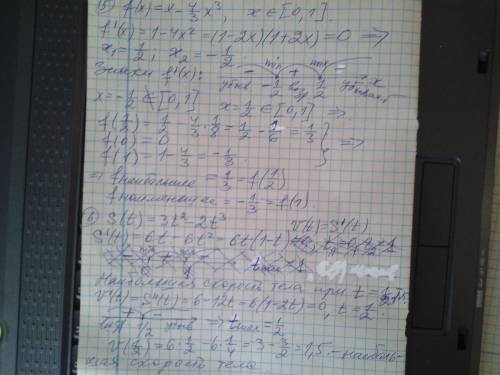 5) f(x) = x - 4/3 x³, x ∈ [0, 1].
f'(x) = 1 - 4x² = (1-2x)(1+2x) = 0 ⇒
x₁ = 1/2; x₂ = -1/2
min max
Знаки f'(x): - + -
убыв -1/2 возр 1/2 убывает x
x = -1/2 ∉ [0,1] x = 1/2 ∈ [0,1] ⇒
f(1/2) = 1/2 - 4/3 · 1/8 = 1/2 - 1/6 = 1/3
f(0) = 0 } ⇒
f(1) = 1 - 4/3 = -1/3.
⇒ f наибольшее = 1/3 = f(1/2)
f наименьшее = -1/3 = f(1)
6) S(t) = 3t² - 2t³ V(t) = S'(t)
S'(t) = 6t - 6t² = 6t(1-t)
Наибольшая скорость тела при t =
V'(t) = S''(t) = 6 - 12t = 6(1-2t) = 0, t = 1/2
1/2 ⇒ t max = 1/2
V(1/2) = 6 · 1/2 - 6 · 1/4 = 3 - 3/2 = 1,5. - наиболь-
шая скорость тела